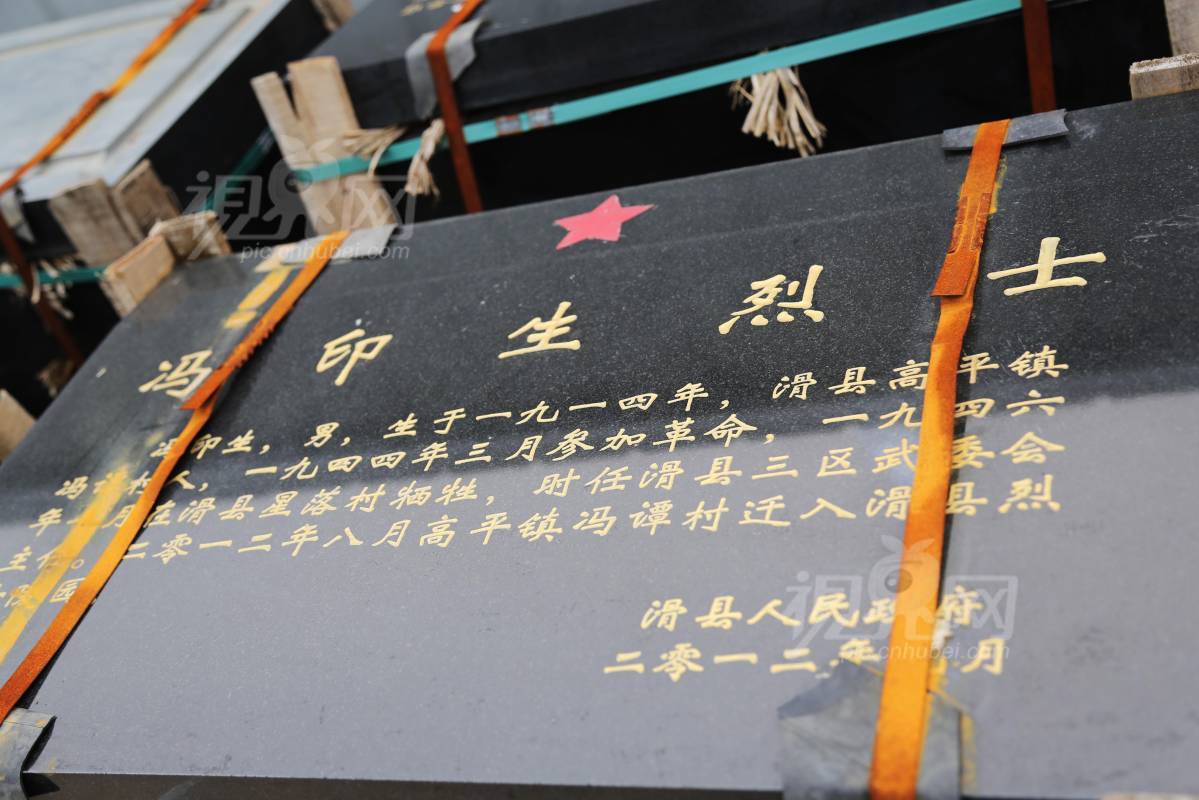 视界网
pic.cnhubei.com
冯印生烈士
冯印生，男，生于一九一四年，滑县高平镇
冯 村人，一九四四年三月参加革命，一九四六
年 月在滑县星落村牺牲，时任滑县三区武委会
主任。二零一二年八月高平镇冯谭村迁入滑县烈
陵园
滑县人民政府
二零一二年 月
视界网
pic.cnhubei.com